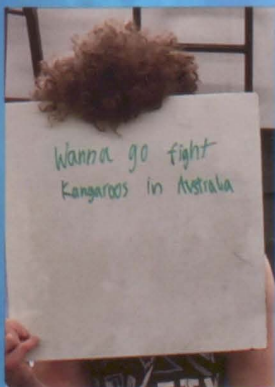 Wanna go fight
Kangaroos in Australia